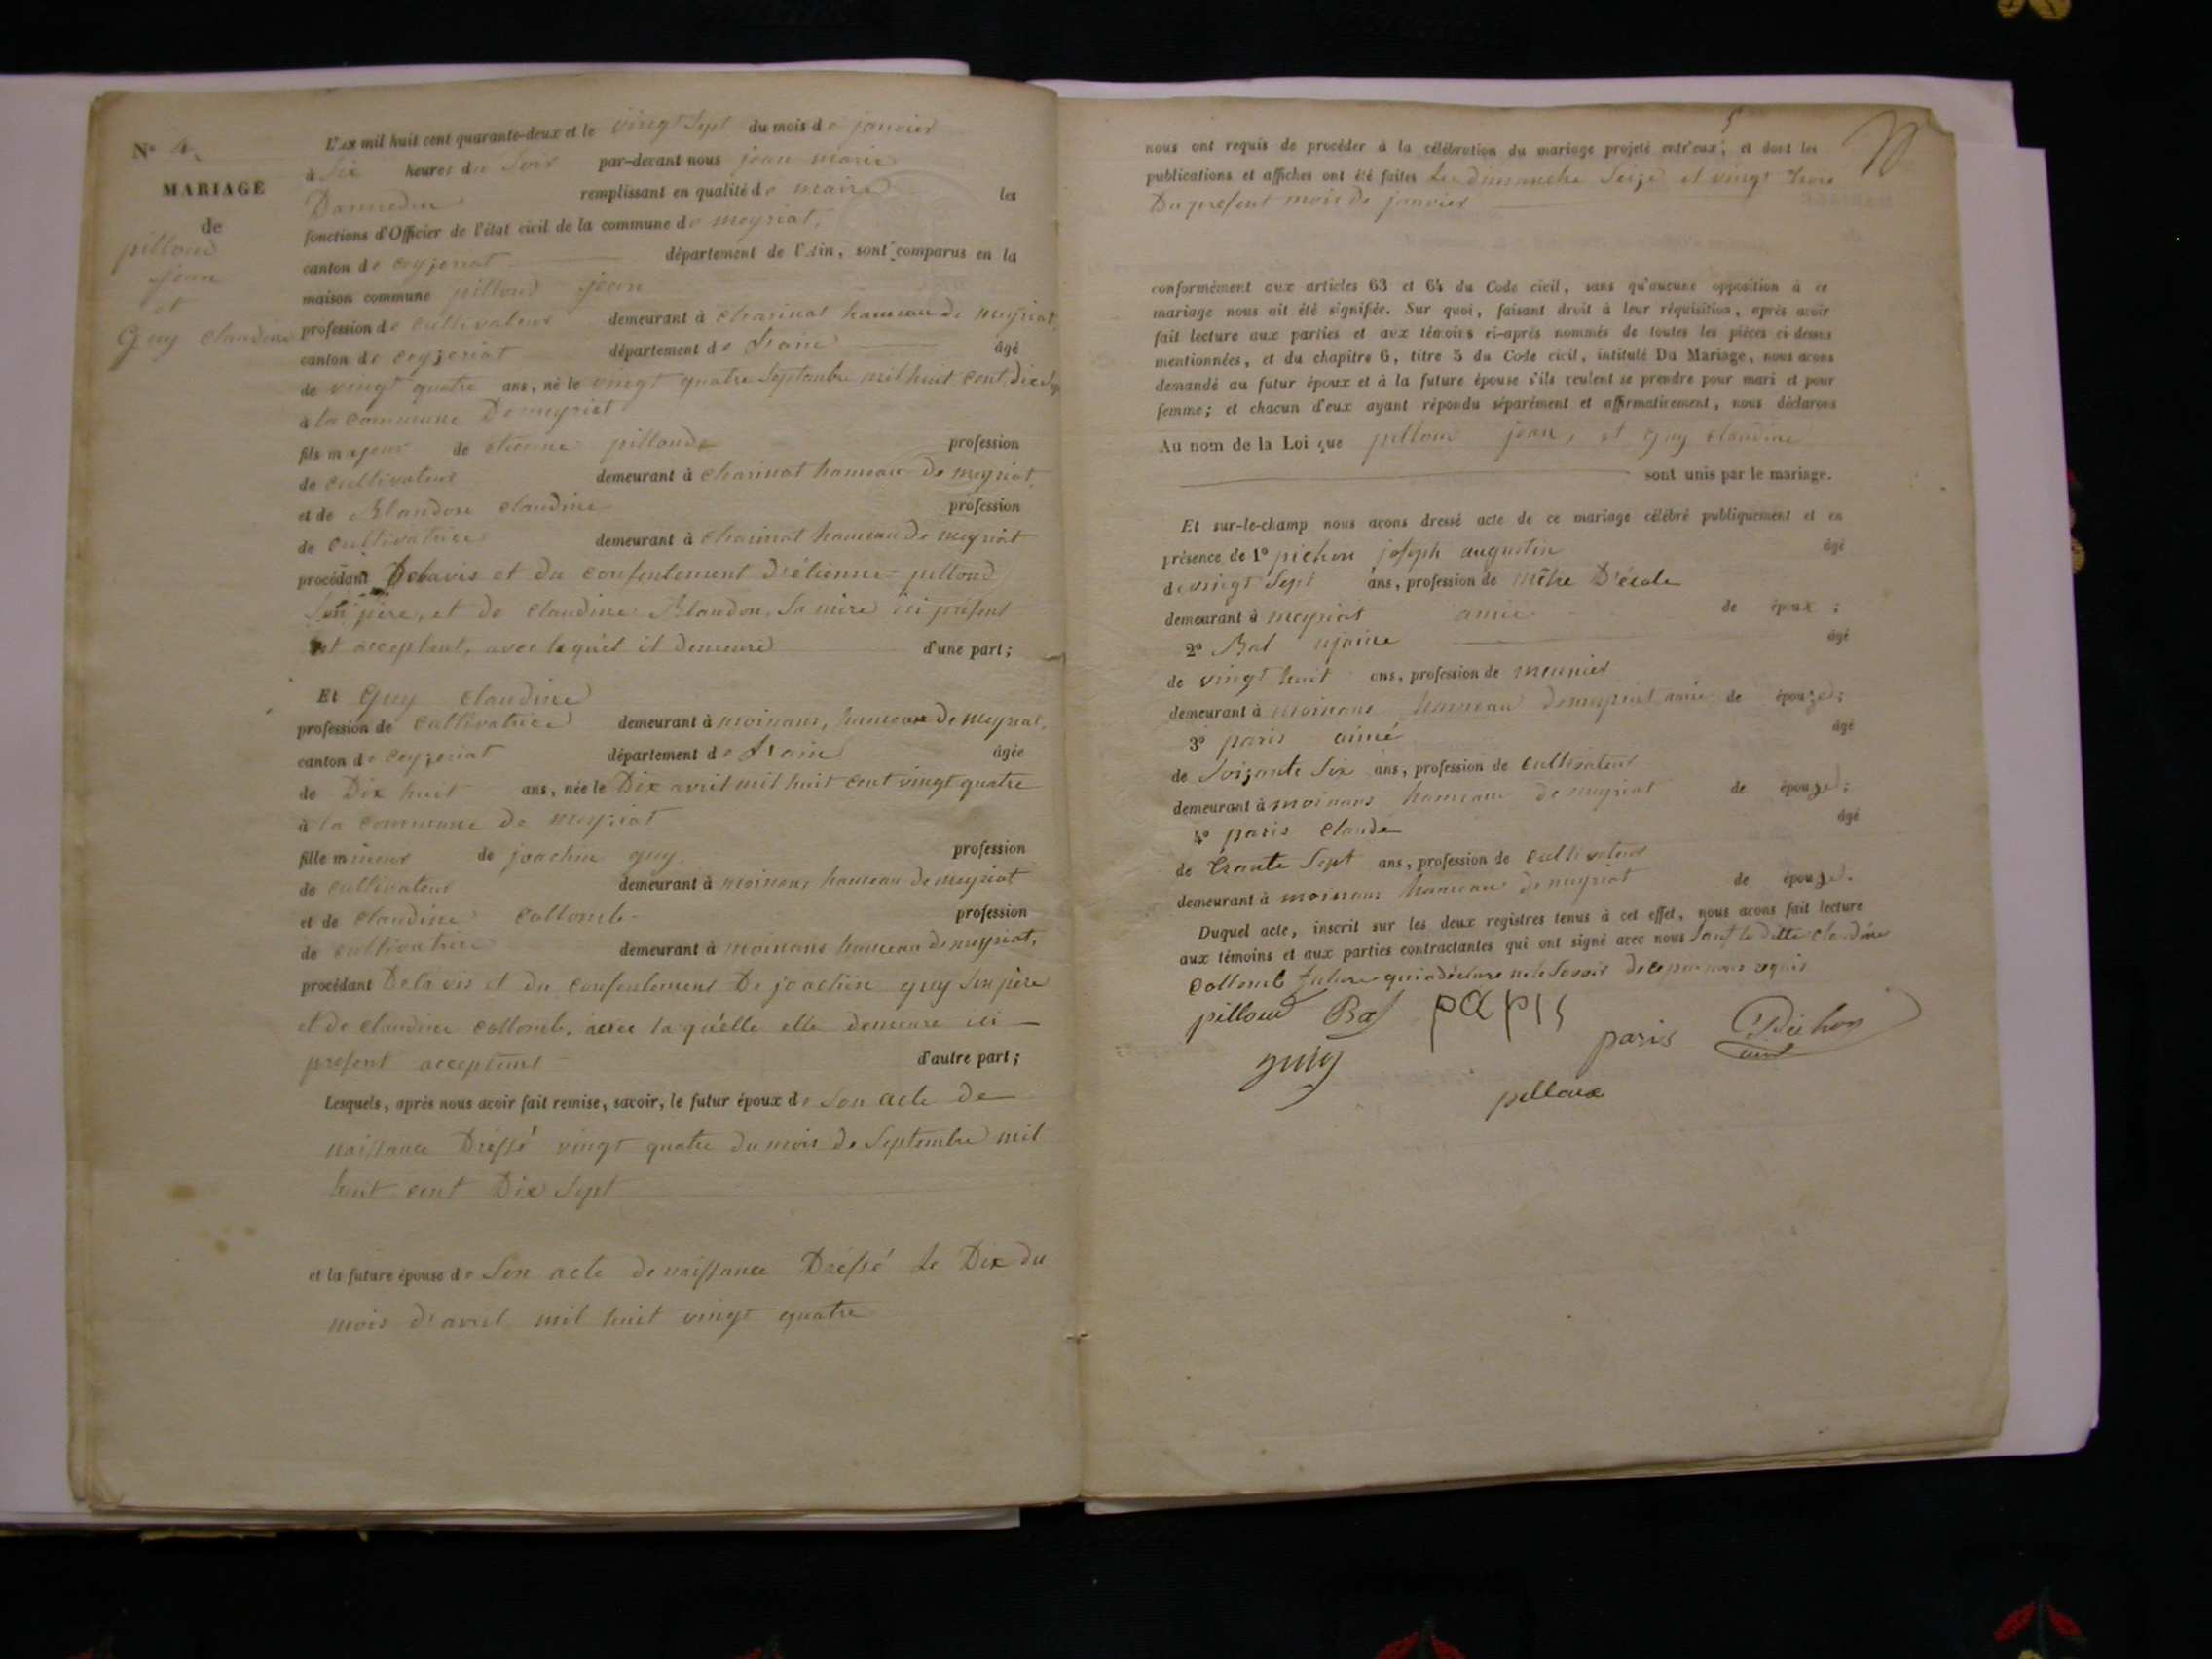 N° 4.
MARIAGE
de
pilloud
jean
et
Guy claudine
L'AN mil huit cent quarante-deux et le vingt Sept du mois de janvier
à Six heures du Soir par-devant nous jean marie
remplissant en qualité de maire les
fonctions d'Officier de l'état civil de la commune de meyriat,
canton de ceyzeriat département de l'Ain, sont comparus en la
maison commune pilloud jean
profession de cultivateur demeurant à charinat hameau de meyriat,
canton de ceyzeriat département de âgé
de vingt quatre ans, né le vingt quatre Septembre mil huit cent dix Sept
à la commune De meyriat
fils majeur de etienne pilloud profession
de cultivateur demeurant à charinat hameau de meyriat,
et de Blandon claudine profession
de cultivatrice demeurant à charinat hameau de meyriat
procédant De lavis et du consentement d'étienne pilloud
Son père, et de claudine Blandon, Sa mère ici présent
et acceptent, avec lequel il demeure d'une part;
Et Guy claudine
profession de cultivatrice demeurant à moinans, hameau de meyriat,
canton de ceyzeriat département de âgée
de Dix huit ans, née le Dix avril mil huit cent vingt quatre
à la commune de meyriat
fille mineur de joachin guy. profession
de cultivateur demeurant à moinans hameau de meyriat
et de claudine collomb profession
de cultivatrice demeurant à moinans hameau de meyriat,
procédant De la vis et du consentement De joachin guy Son père
et de claudine collomb, avec laqu'elle elle demeure ici
présent acceptent d'autre part;
Lesquels, après nous avoir fait remise, savoir, le futur époux de Son acte De
naissance Dressé vingt quatre du mois de Septembre mil
huit cent Dix Sept
et la future épouse de Son acte de naissance Dressé Le Dix du
mois d'avril mil huit vingt quatre
5
nous ont requis de procéder à la célébration du mariage projeté entr'eux, et dont les
publications et affiches ont été faites Les dimanche Seize et vingt trois
Du présent mois de janvier
conformément aux articles 63 et 64 du Code civil, sans qu'aucune opposition à ce
mariage nous ait été signifiée. Sur quoi, faisant droit à leur réquisition, après avoir
fait lecture aux parties et aux témoins ci-après nommés de toutes les pièces ci-dessus
mentionnées, et du chapitre 6, titre 5 du Code civil, intitulé Du Mariage, nous avons
demandé au futur époux et à la future épouse s'ils veulent se prendre pour mari et pour
femme; et chacun d'eux ayant répondu séparément et affirmativement, nous déclarons
Au nom de la Loi que pilloud jean, et guy claudine
sont unis par le mariage.
Et sur-le-champ nous avons dressé acte de ce mariage célébré publiquement et en
présence de 1° pichon joseph augustin âgé
de vingt Sept ans, profession de mêtre D'école
demeurant à meyriat amie de époux;
2° Bal âgé
de vingt huit ans, profession de meunier
demeurant à moinans hameau de meyriat amie de épouze;
3° paris aimé âgé
de Soizante Six ans, profession de cultivateur
demeurant à moinans hameau de meyriat de épouze;
4° paris claude âgé
de trante Sept ans, profession de cultivateur
demeurant à moinans hameau de meyriat de épouze.
Duquel acte, inscrit sur les deux registres tenus à cet effet, nous avons fait lecture
aux témoins et aux parties contractantes qui ont signé avec nous Sauf la ditte claudine
collomb qui a déclaré ne le Savoir de ce par nous requis
pilloud Bal papis
paris Pichon
guy
pilloux